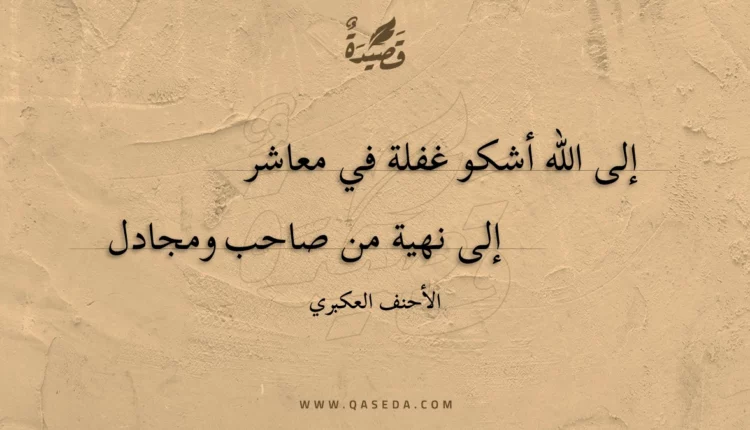 قَصِيدَةٌ
إلى الله أشكو غفلة في معاشر
إلى نهية من صاحب ومجادل
الأحنف العكبري
WWW.QASEDA.COM